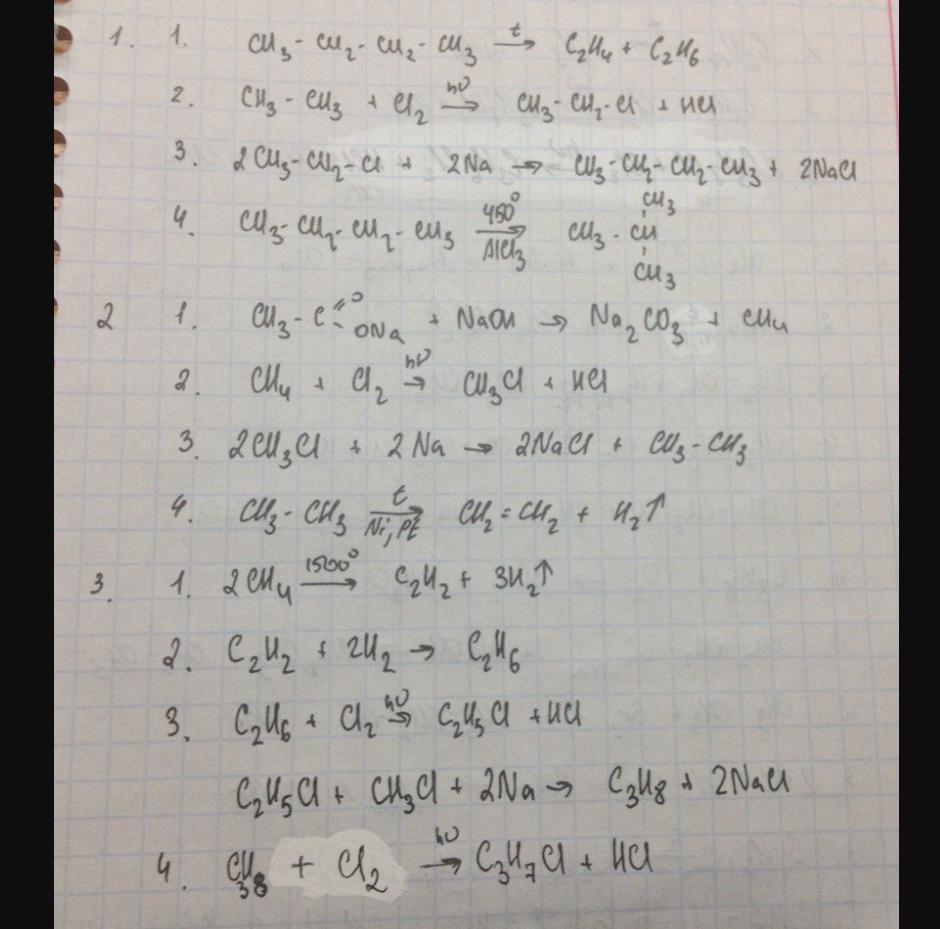 1. 1. CH3 - CH2 - CH2 - CH3 —t→ C2H4 + C2H6
2. CH3 - CH3 + Cl2 —hν→ CH3 - CH2 - Cl + HCl
3. 2CH3 - CH2 - Cl + 2Na → CH3 - CH2 - CH2 - CH3 + 2NaCl
CH3
4. CH3 - CH2 - CH2 - CH3 —450°, AlCl3→ CH3 - CH
CH3
2 1. CH3 - C =O - ONa + NaOH → Na2CO3 + CH4
2. CH4 + Cl2 —hν→ CH3Cl + HCl
3. 2CH3Cl + 2Na → 2NaCl + CH3 - CH3
4. CH3 - CH3 —t, Ni, Pt→ CH2 = CH2 + H2↑
3. 1. 2CH4 —1500°→ C2H2 + 3H2↑
2. C2H2 + 2H2 → C2H6
3. C2H6 + Cl2 —hν→ C2H5Cl + HCl
C2H5Cl + CH3Cl + 2Na → C3H8 + 2NaCl
4. C3H8 + Cl2 —hν→ C3H7Cl + HCl